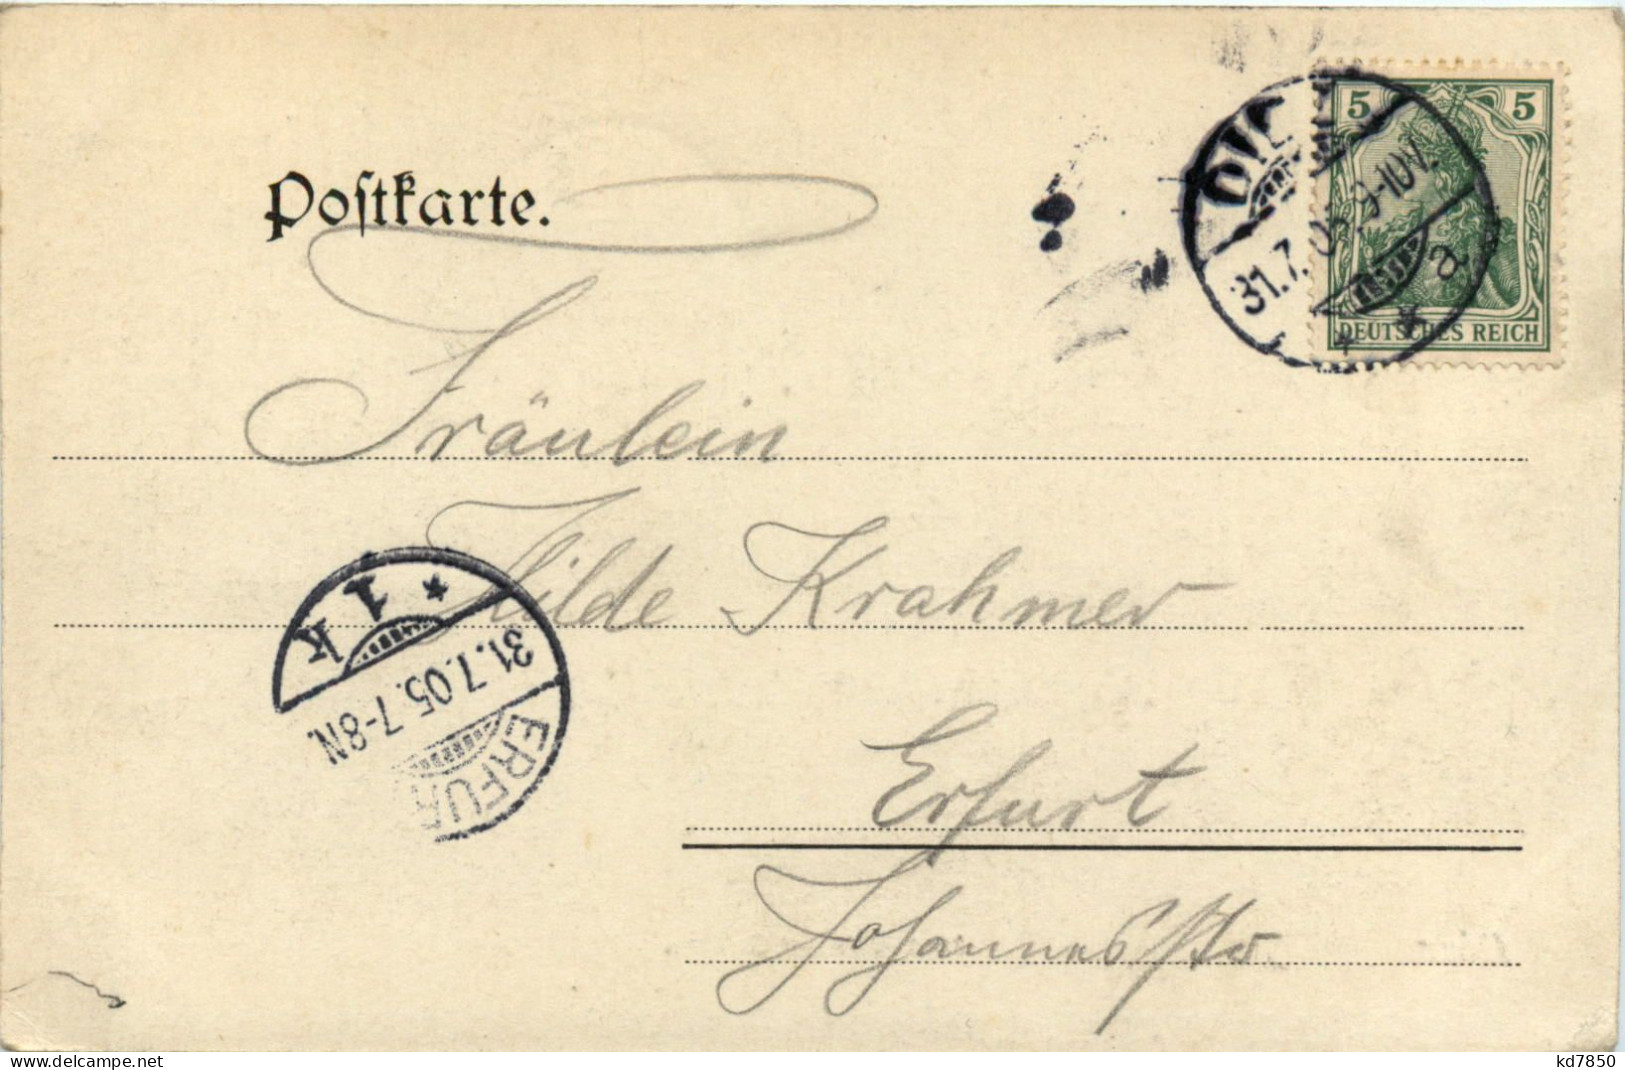 Postkarte.
5 5
DEUTSCHES REICH
31.7.05. 9-10V.
a
* *
Fräulein
Hilde Krahmer
Erfurt
Johannesstr
ERFUR
31.7.05.7-8N.
* 1 k
delcampe.net
kd7850